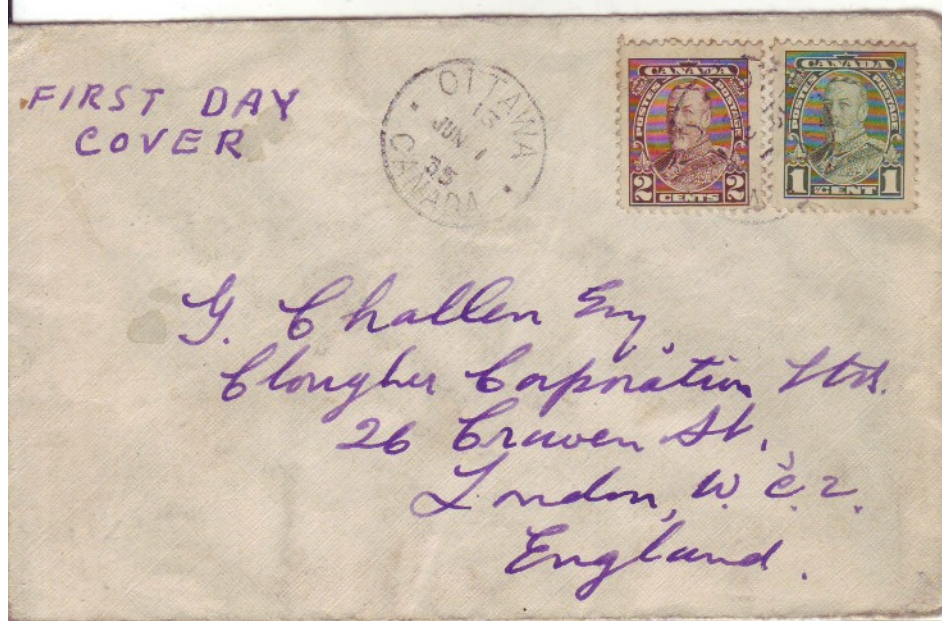 FIRST DAY
COVER
OTTAWA
15
JUN 1
35
CANADA
CANADA
POSTES POSTAGE
2 CENTS 2
CANADA
POSTES POSTAGE
1 CENT 1
G. Challen Esq
Clougher Corporation Ltd.
26 Craven St.,
London, W.C.2.
England.